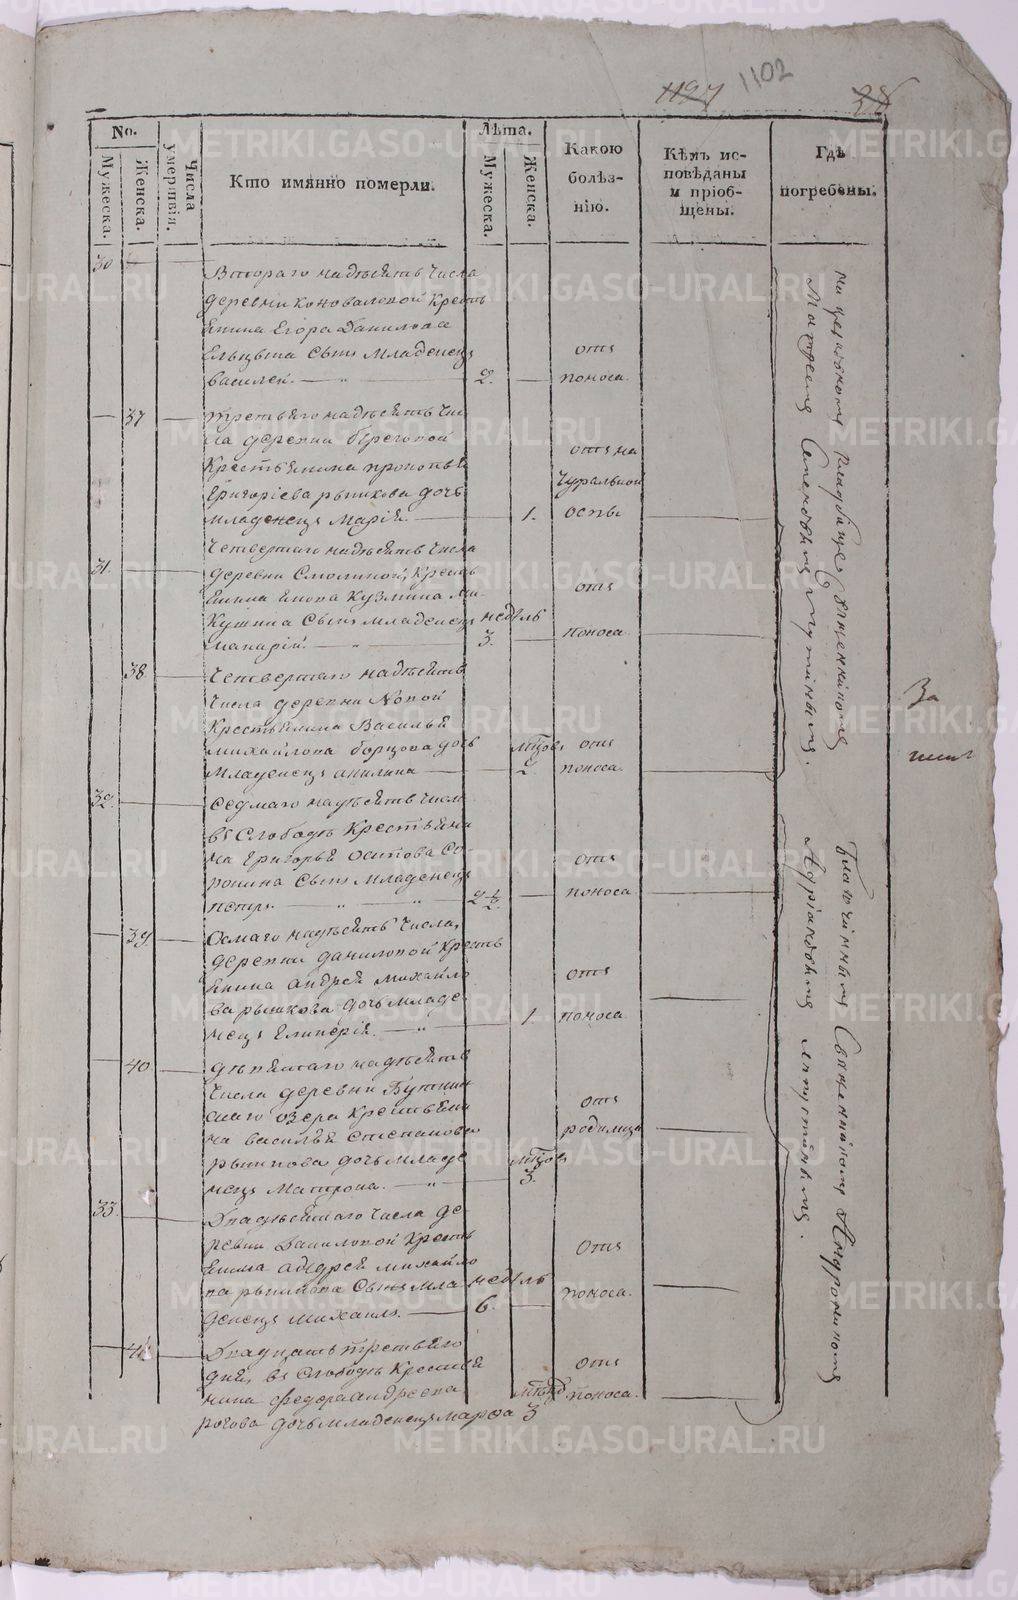 1197 1102 28
No.
Мужеска.
Женска.
Числа умершія.
Кто имянно померли.
Лѣта.
Мужеска.
Женска.
Какою болѣз-
нію.
Кѣмъ ис-
повѣданы
и пріоб-
щены.
Гдѣ
погребены.
30
Втораго надесять числа
деревни коноваловой Кресть
янина Егора Данилова
Ельцына сынъ младенецъ
василей. 2. отъ поноса.
37 третьяго надесять чи
сла деревни береговой
Крестьянина прокопья
Григоріева рычкова дочь
младенецъ Марія. 1. отъ на
туральной
оспы
31. Четвертаго надесять числа
деревни Смолиной, Кресть
янина Кузмина
сынъ младенецъ недѣль
макарій. 3. отъ поноса
38 Четвертаго надесять
числа деревни Новой
Крестьянина Василья
михайлова борцова дочь мцов
младенецъ акилина 2. отъ поноса.
32. седмаго надесять числа
въ Слободѣ Крестьяни
на Григорья осипова Со
ронина сынъ младенецъ
петръ. 2½. отъ поноса
39 Осмаго надесять числа,
деревни даниловой Кресть
янина андрея михайло
ва рычкова дочь младе
нецъ Гликерія. 1 отъ поноса
40. девятаго надесять
числа деревни
скаго озера Крестьяни
на василья степанова
рычкова дочь младе мцов
нецъ Матрона. 3. отъ
родимца
33. Двадесятаго числа де
ревни Даниловой Кресть
янина андрея михайло
ва рычкова сынъ мла недѣль
денецъ михаилъ. 6. отъ
поноса.
41 Двадцать третьяго
дня, въ Слободѣ Крестья
нина федора андреева
рогова дочь младенецъ марфа 3 отъ
поноса.
на приходскомъ кладбище священникомъ
Матфеемъ
благочиннымъ священникомъ Андроникомъ
За
METRIKI.GASO-URAL.RU